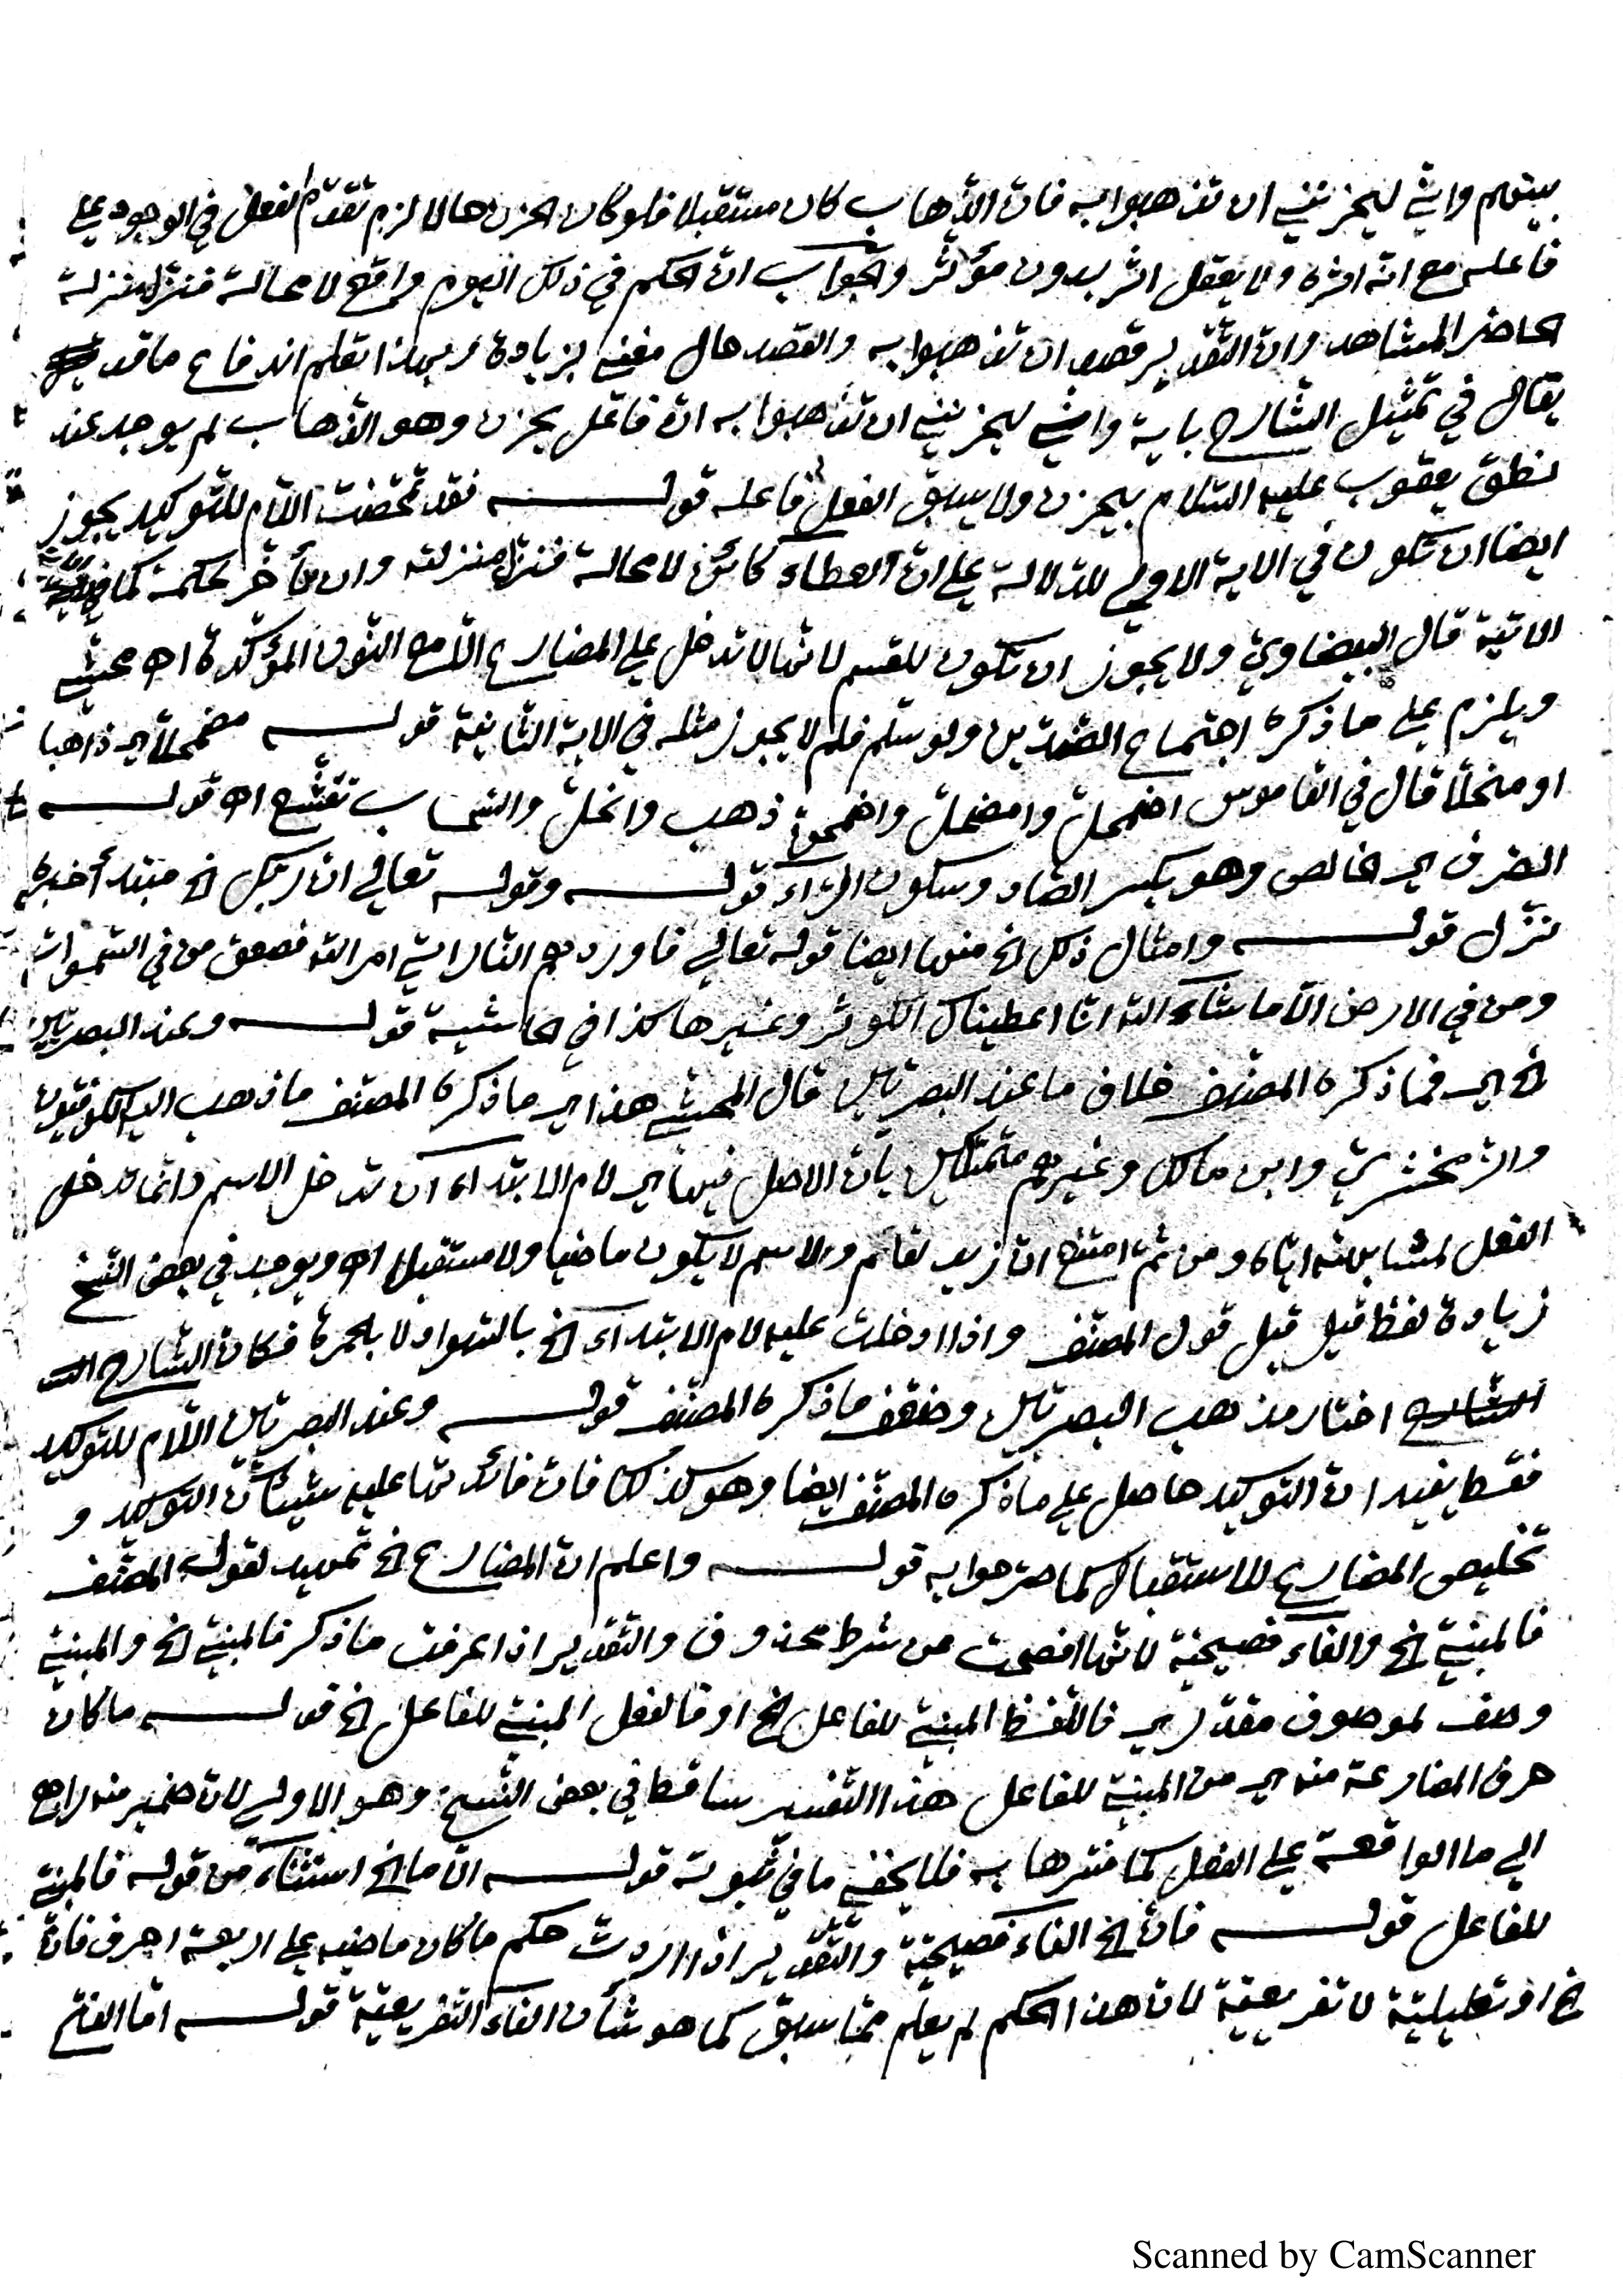 بينهم واني ليحزنني ان تذهبوا به فان الذهاب كان مستقبلا فلو كان الحزن حالا لزم تقدم الفعل في الوجود على
فاعله مع انه اثره ولا يعقل اثر بدون مؤثر والجواب ان الحكم في ذلك اليوم واقع لا محالة فنزل منزلة
الحاضر المشاهد وان التقدير قصد ان تذهبوا به والقصد حال مغني بزيادة وبهذا تعلم اندفاع ما قد
يقال في تمثيل الشارح باية واني ليحزنني ان تذهبوا به ان فاعل يحزن وهو الذهاب لم يوجد عند
نطق يعقوب عليه السلام بيحزن ولا يسبق الفعل فاعله قولـــه فقد تمحضت اللام للتوكيد يجوز
ايضا ان تكون في الاية الاولى للدلالة على ان العطاء كائن لا محالة فنزل منزلته وان تأخر لحكمة كما في
الاتية قال البيضاوي ولا يجوز ان تكون للقسم لانها لا تدخل على المضارع الا مع النون المؤكدة اه محشي
ويلزم على ما ذكره اجتماع الضدين ولو سلم فلم لا يجوز مثله في الاية الثانية قولـــه مضمحلا اي ذاهبا
او منحلا قال في القاموس اضمحل وامضحل واضمحن ذهب وانحل والسحاب تقشع اه قولـــه
الصرف اي الخالص وهو بكسر الصاد وسكون الراء قولـــه وقولـه تعالى ان ربك الخ مبتدأ خبره
نزل قولـــه وامثال ذلك الخ منها ايضا قوله تعالى فاوردهم النار اتى امر الله فصعق من في السموات
ومن في الارض الا ما شاء الله انا اعطيناك الكوثر وغيرها كذا في الحاشية قولـــه وعند البصريين
الخ اي فما ذكره المصنف خلاف ما عند البصريين قال المحشي هذا اي ما ذكره المصنف ما ذهب اليه الكوفيون
والزمخشري وابن مالك وغيرهم متمسكين بان الاصل فيها اي لام الابتداء ان تدخل الاسم وانما تدخل
الفعل لمشابهته اياه ومن ثم امتنع ان زيد لقائم والاسم لا يكون ماضيا ولا مستقبلا اه ويوجد في بعض النسخ
زيادة لفظ قيل قبل قول المصنف واذا ادخلت عليه لام الابتداء الخ بالسواد لا بالحمرة فكان الشارح
الشارح اختار مذهب البصريين وضعف ما ذكره المصنف قولـــه وعند البصريين اللام للتوكيد
فقط يفيد ان التوكيد حاصل على ما ذكره المصنف ايضا وهو كذلك فان فائدتها عليه شيئان التوكيد و
تخليص المضارع للاستقبال كما صرحوا به قولـــه واعلم ان المضارع الخ تمهيد لقوله المصنف
فالمبني الخ والفاء فصيحية لانها افصحت عن شرط محذوف والتقدير اذا عرفت ما ذكر فالمبني الخ والمبني
وصف لموصوف مقدر اي فاللفظ المبني للفاعل الخ او فالفعل المبني للفاعل الخ قولـــه ما كان
حرف المضارعة منه اي من المبني للفاعل هذا التفسير ساقط في بعض النسخ وهو الاولى لان ضمير منه راجع
الى ما الواقعة على الفعل كما فسرها به فلا يخفى ما في ثبوته قولـــه الا ما الخ استثناء من قوله فالمبني
للفاعل قولـــه فان الخ الفاء فصيحية والتقدير اذا اردت حكم ما كان ماضيه على اربعة احرف فان
الخ او تعليلية لا تفريعية لان هذا الحكم لم يعلم مما سبق كما هو شأن الفاء التفريعية قولـــه اما الفتح
Scanned by CamScanner